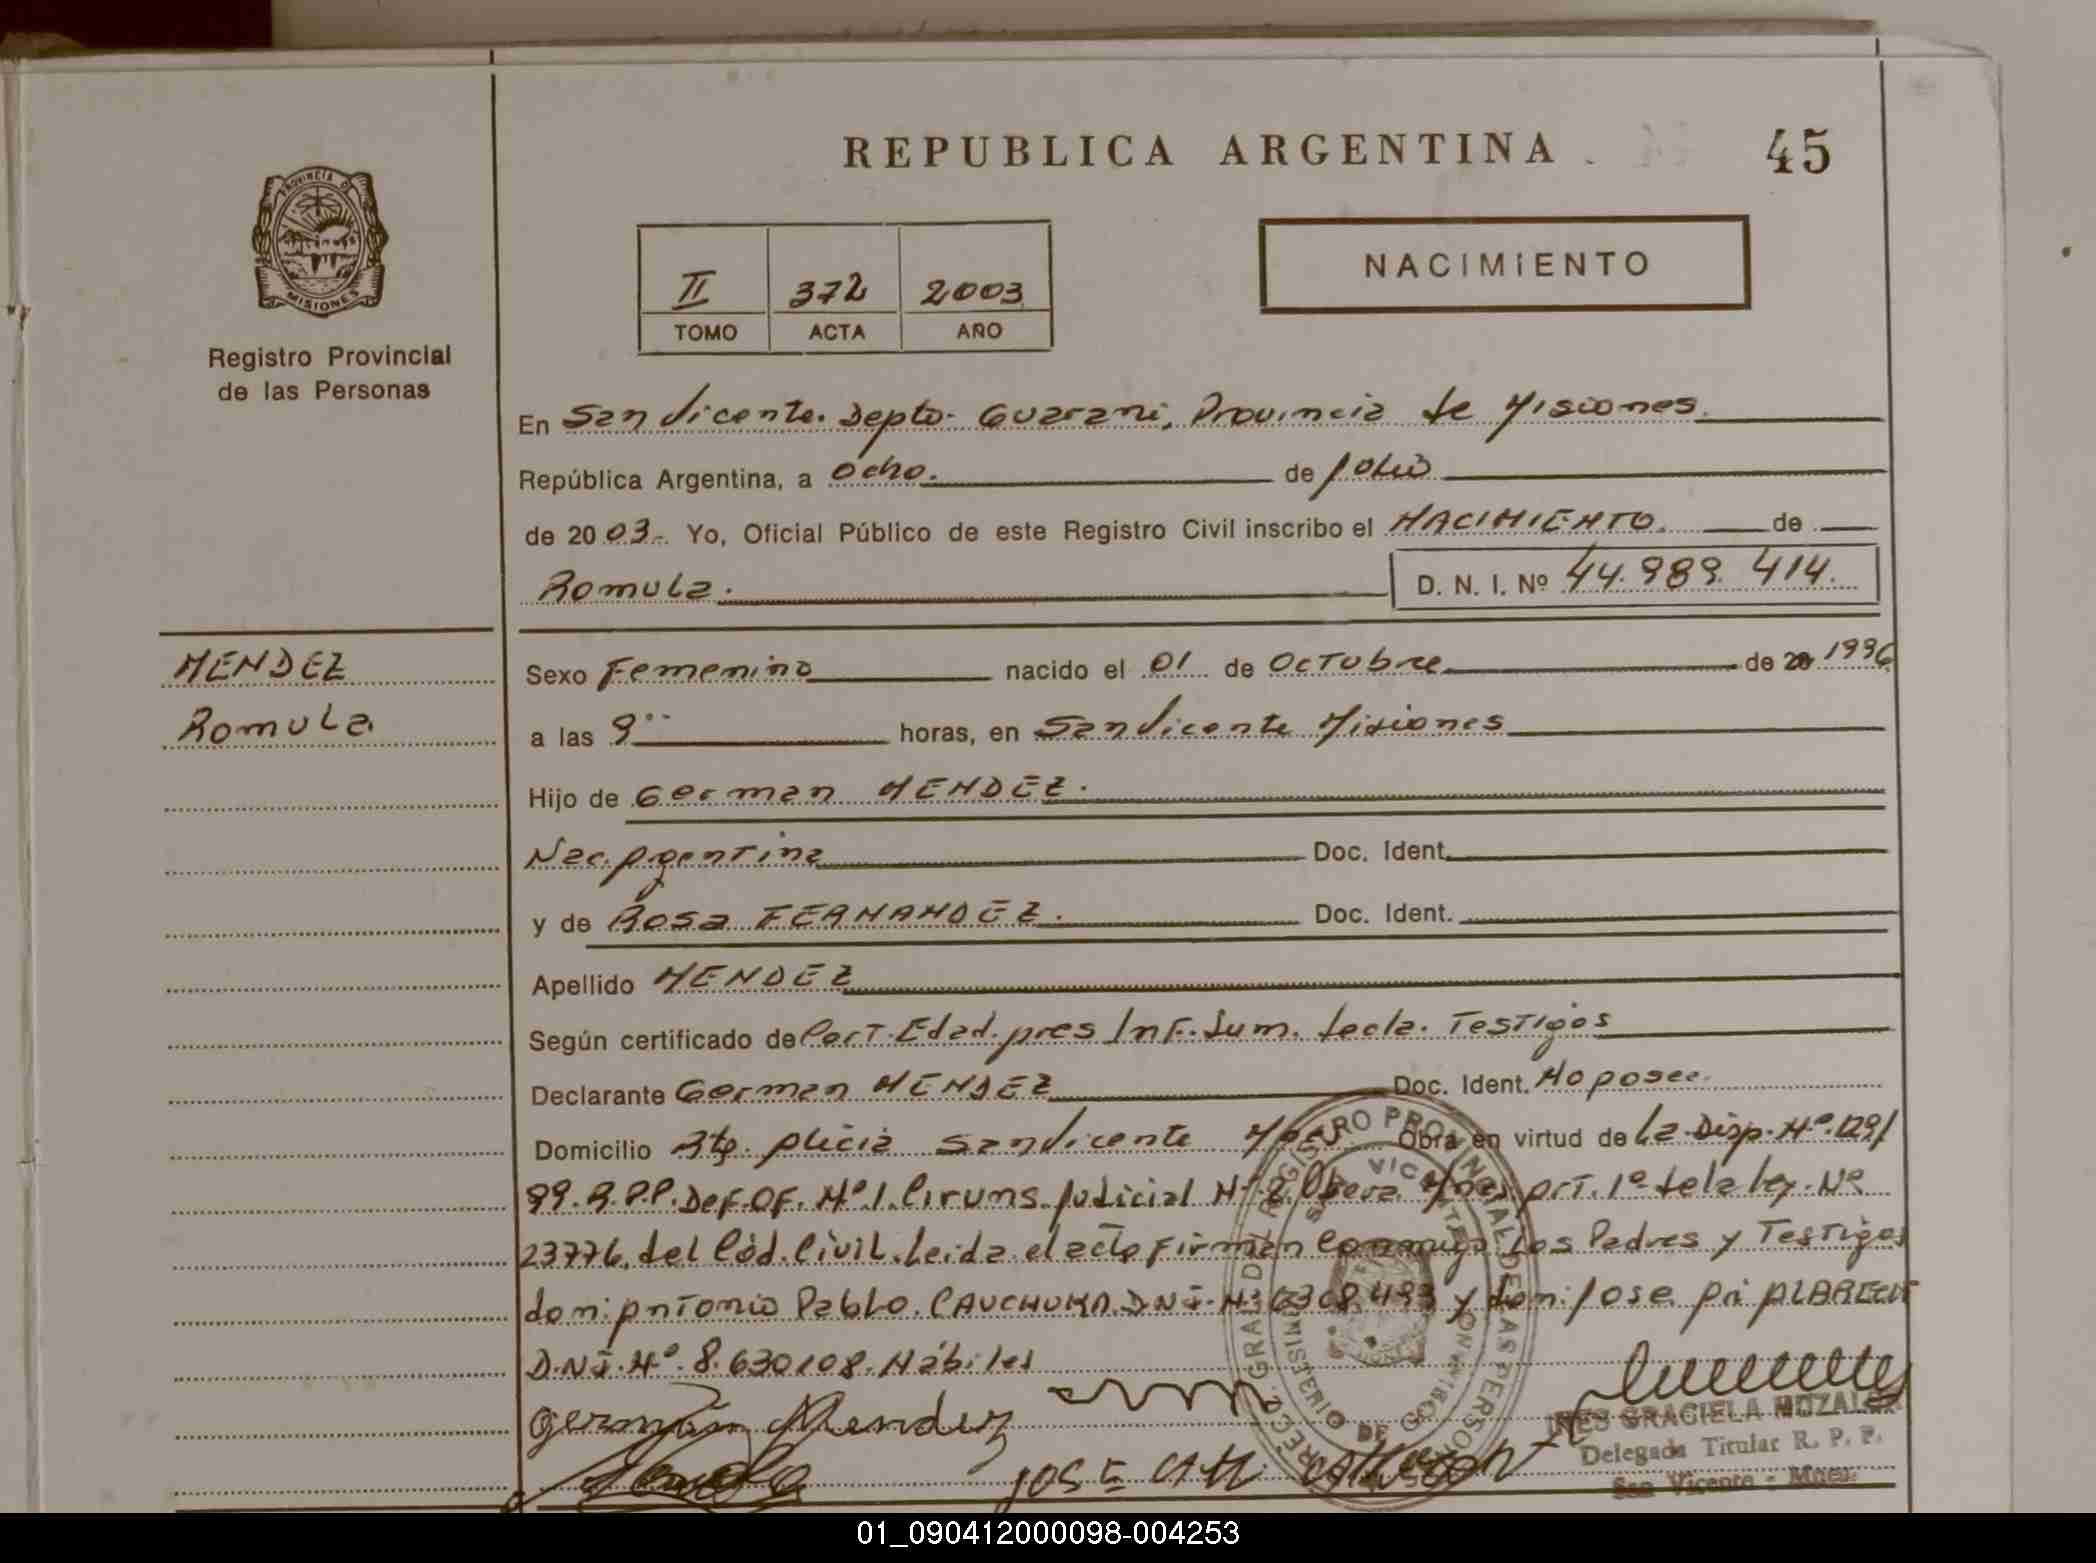 REPUBLICA ARGENTINA
45
PROVINCIA DE
MISIONES
Registro Provincial
de las Personas
II 372 2003
TOMO ACTA AÑO
NACIMIENTO
En San Vicente. Depto. Guarani, Provincia de Misiones.
República Argentina, a ocho. de Julio
de 20 03. Yo, Oficial Público de este Registro Civil inscribo el NACIMIENTO. de
Romula. D. N. I. Nº 44.989.414.
MENDEZ
Romula
Sexo Femenino nacido el 01 de Octubre de 20 1996
a las 9 horas, en San Vicente Misiones
Hijo de German MENDEZ.
Nac. Argentina Doc. Ident.
y de Rosa FERNANDEZ. Doc. Ident.
Apellido MENDEZ
Según certificado de Cert. Edad. pres Inf. Sum. decla. Testigos
Declarante German MENDEZ Doc. Ident. No posee.
Domicilio Bº. Alicia San Vicente Mnes. Obra en virtud de La Disp. Nº. 1291
99. R.P.P. Def. Of. Nº. 1. Ciruns. Judicial Nº. 2. Obera Mnes. Art. 1º de la ley. Nº
23776. del Cód. Civil. Leida el acta Firman conmigo Los Padres y Testigos
don: Antonio Pablo. CAUCHUKA. D.N.I. Nº 6308.493 y don: Jose. Ari ALBRECHT
D.N.I. Nº. 8.630108. Hábiles
German Mendez
JOSE ARI
REGISTRO PROVINCIAL DE LAS PERSONAS
SAN VICENTE
MINISTERIO DE GOBIERNO
INES GRACIELA MUZALSK
Delegada Titular R. P. P.
San Vicente - Mnes.
01_090412000098-004253